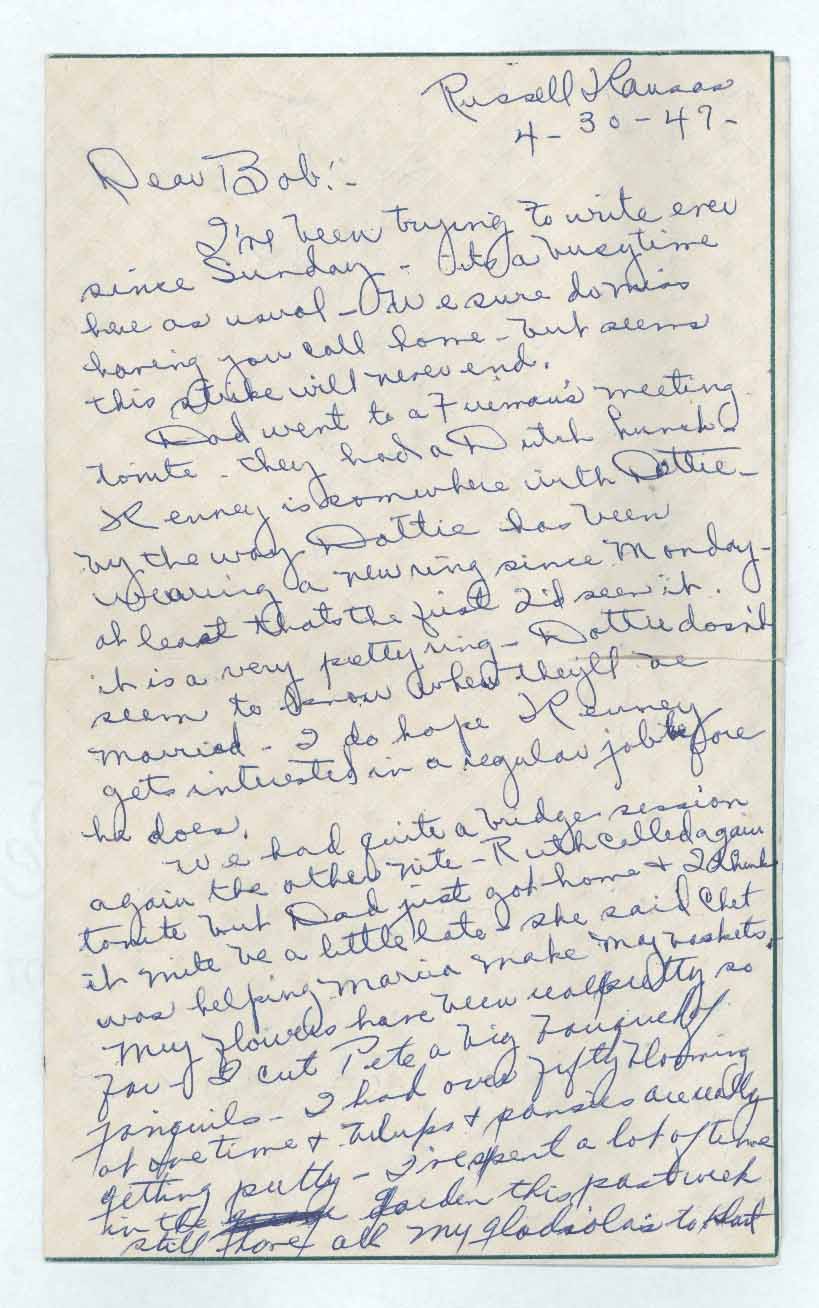 Russell Kansas
4-30-47-
Dear Bob:-
I've been trying to write ever
since Sunday - its a busy time
here as usual - We sure do miss
having you call home - but seems
this strike will never end.
Dad went to a Fireman's meeting
tonite - they had a Dutch Lunch -
Kenney is somewhere with Dottie -
by the way Dottie has been
wearing a new ring since Monday -
at least thats the first I'd seen it.
it is a very pretty ring - Dottie dosn't
seem to know when they'll be
married - I do hope Kenney
gets interested in a regular job before
he does.
We had quite a bridge session
again the other nite - Ruth called again
tonite but Dad just got home & I think
it mite be a little late - she said Chet
was helping Marcia make May baskets.
My flowers have been real pretty so
far - I cut Pete a big bouquet of
jonquils - I had over fifty blooming
at one time & tulips & pansies are really
getting pretty - I've spent a lot of time
in the garden this past week
still have all my gladiola's to plant